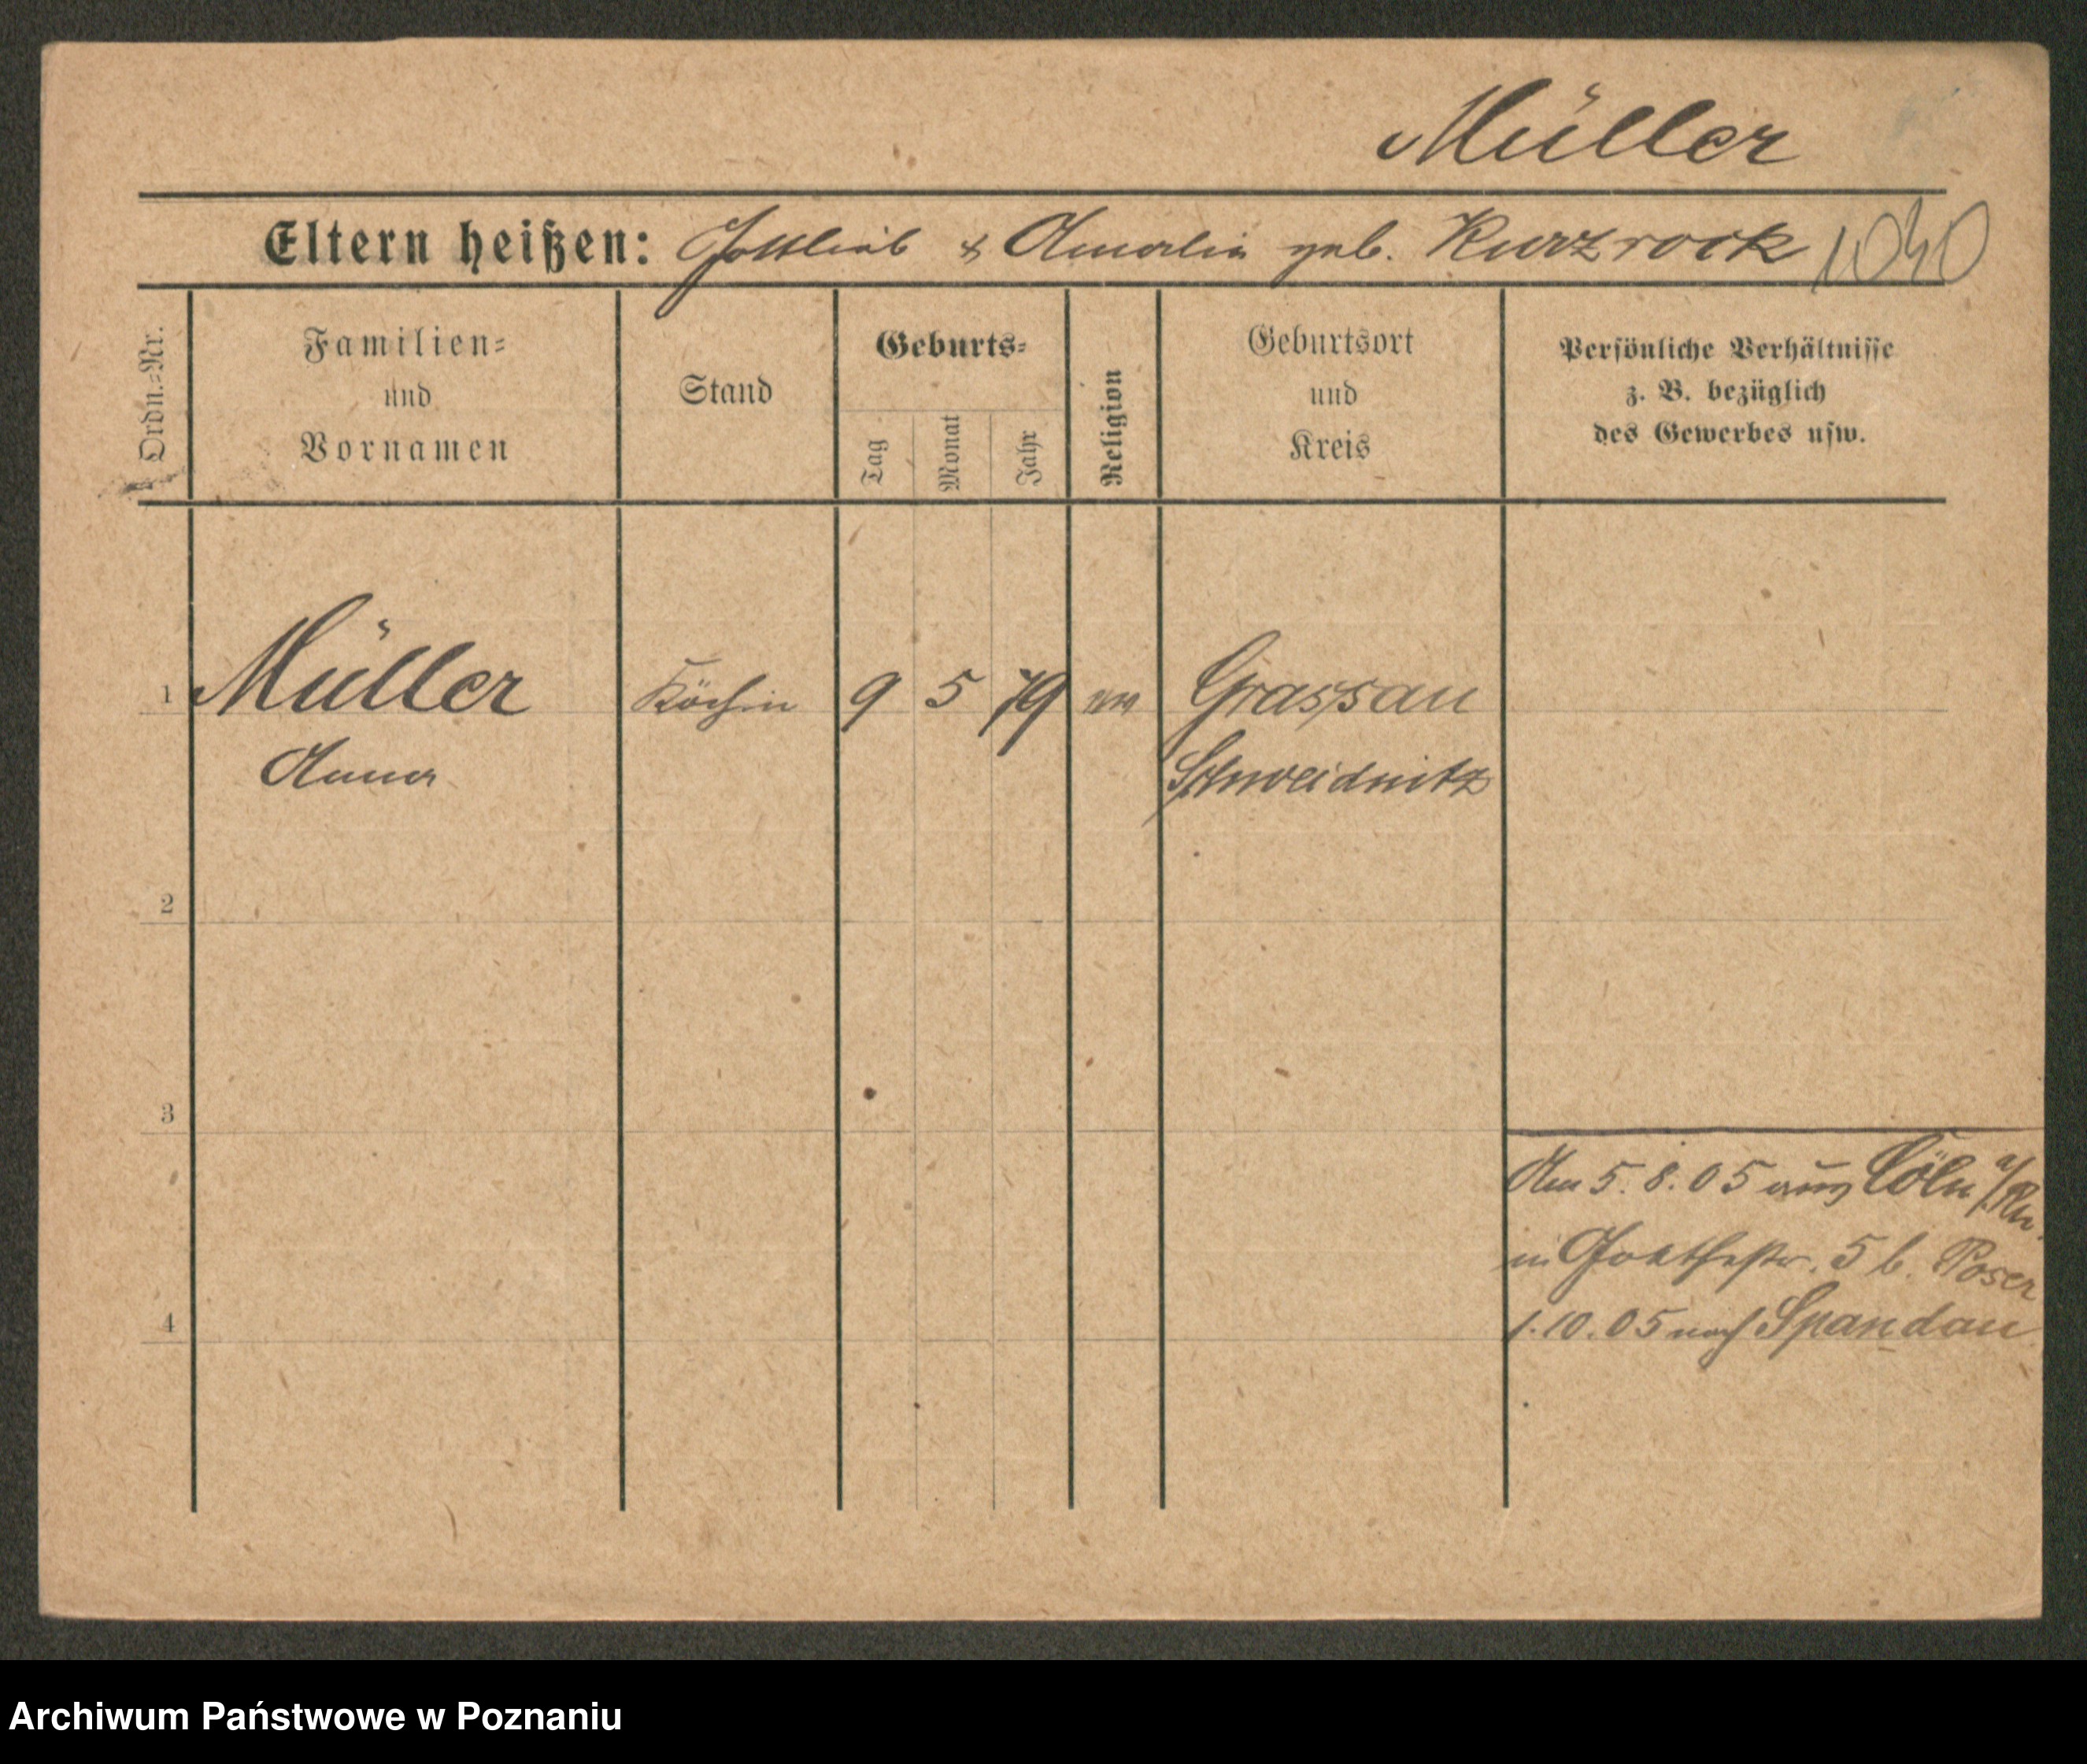 Müller
Eltern heißen: Gottlieb & Amalie geb. Kurzrock 1040
Ordn.=Nr.
Familien=
und
Vornamen
Stand
Geburts=
Tag
Monat
Jahr
Religion
Geburtsort
und
Kreis
Persönliche Verhältnisse
z. B. bezüglich
des Gewerbes usw.
1 Müller Köchin 9 5 79 ev Grassau
Anna Schweidnitz
2
3
Am 5. 8. 05 aus Cöln a/Rh.
in Goethestr. 5 b. Poser
4 1. 10. 05 nach Spandau
Archiwum Państwowe w Poznaniu